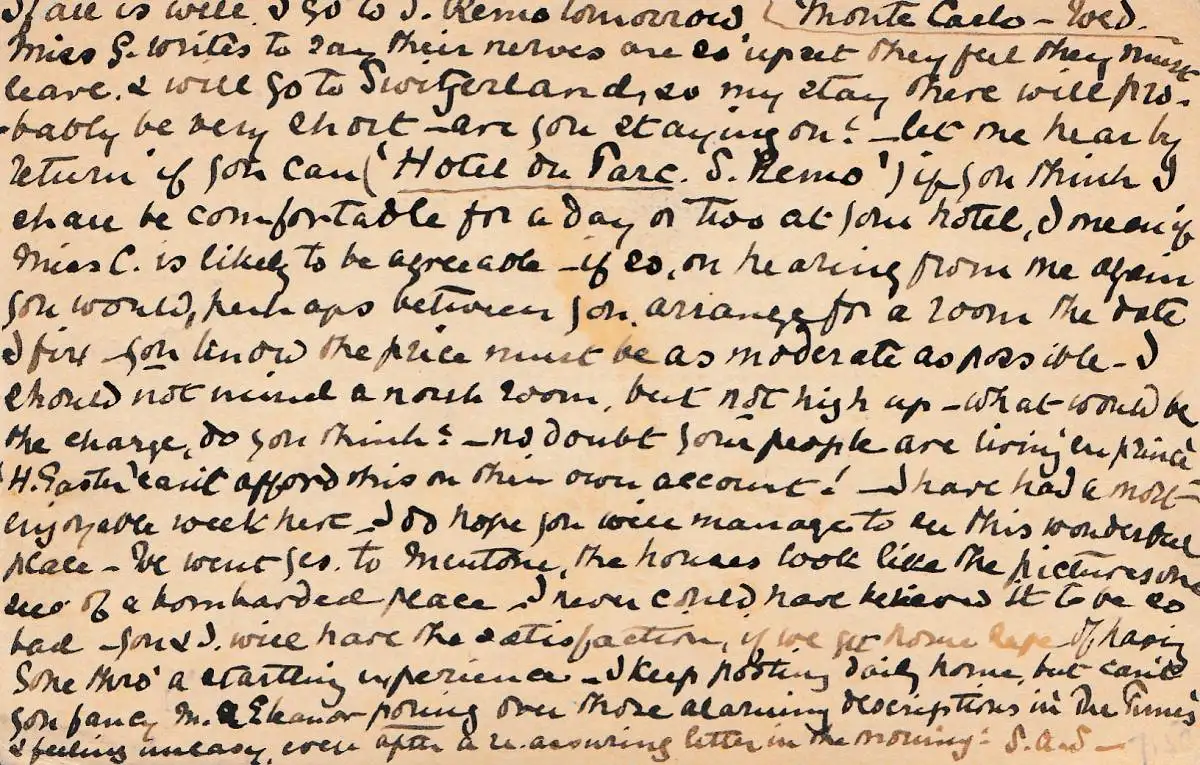 If all is well, I go to S. Remo tomorrow (Monte Carlo - Wed.
Miss G. writes to say their nerves are so upset they feel they must
leave. & will go to Switzerland, so my stay there will pro-
-bably be very short - are you staying on? - let me hear by
return if you can ('Hotel du Parc. S. Remo') if you think I
shall be comfortable for a day or two at your hotel, I mean if
Miss C. is likely to be agreeable - if so, on hearing from me again
you would, perhaps between you, arrange for a room the date
I fix - you know the price must be as moderate as possible - I
should not mind a north room, but not high up - what would be
the charge, do you think? - no doubt your people are living 'en prince'
'H. Easter' can't afford this on their own account! - I have had a most
enjoyable week here - I do hope you will manage to see this wonderful
place - We went yes. to Mentone, the houses look like the pictures one
sees of a bombarded place - I never could have believed it to be so
bad - you & I. will have the satisfaction, if we get home safe of having
gone thro' a startling experience - I keep posting daily home, but can't
you fancy M. & Eleanor poring over those alarming descriptions in 'The Times'
& feeling uneasy even after a re-assuring letter in the morning? S.A.S -